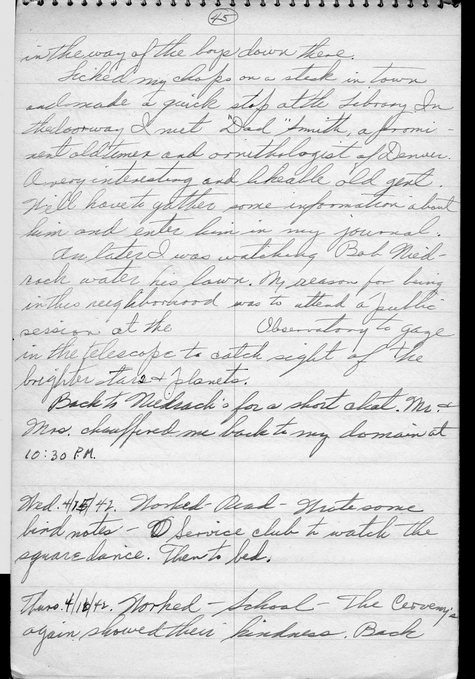 45
in the way of the boys down there.
Licked my chops on a steak in town
and made a quick stop at the Library. In
the doorway I met "Dad" Smith, a promi-
nent oldtimer and ornithologist of Denver.
A very interesting and likeable old gent
Will have to gather some information about
him and enter him in my journal.
An later I was watching Bob Nied-
rach water his lawn. My reason for being
in this neighborhood was to attend a public
session at the Observatory to gaze
in the telescope to catch sight of the
brighter stars & planets.
Back to Niedrach's for a short chat. Mr. &
Mrs. chauffered me back to my domain at
10:30 P.M.
Wed. 4/15/42. Worked - Read - Wrote some
bird notes - Service club to watch the
square dance. Then to bed.
Thurs. 4/16/42. Worked - School - The Cerveny's
again showed their kindness. Back